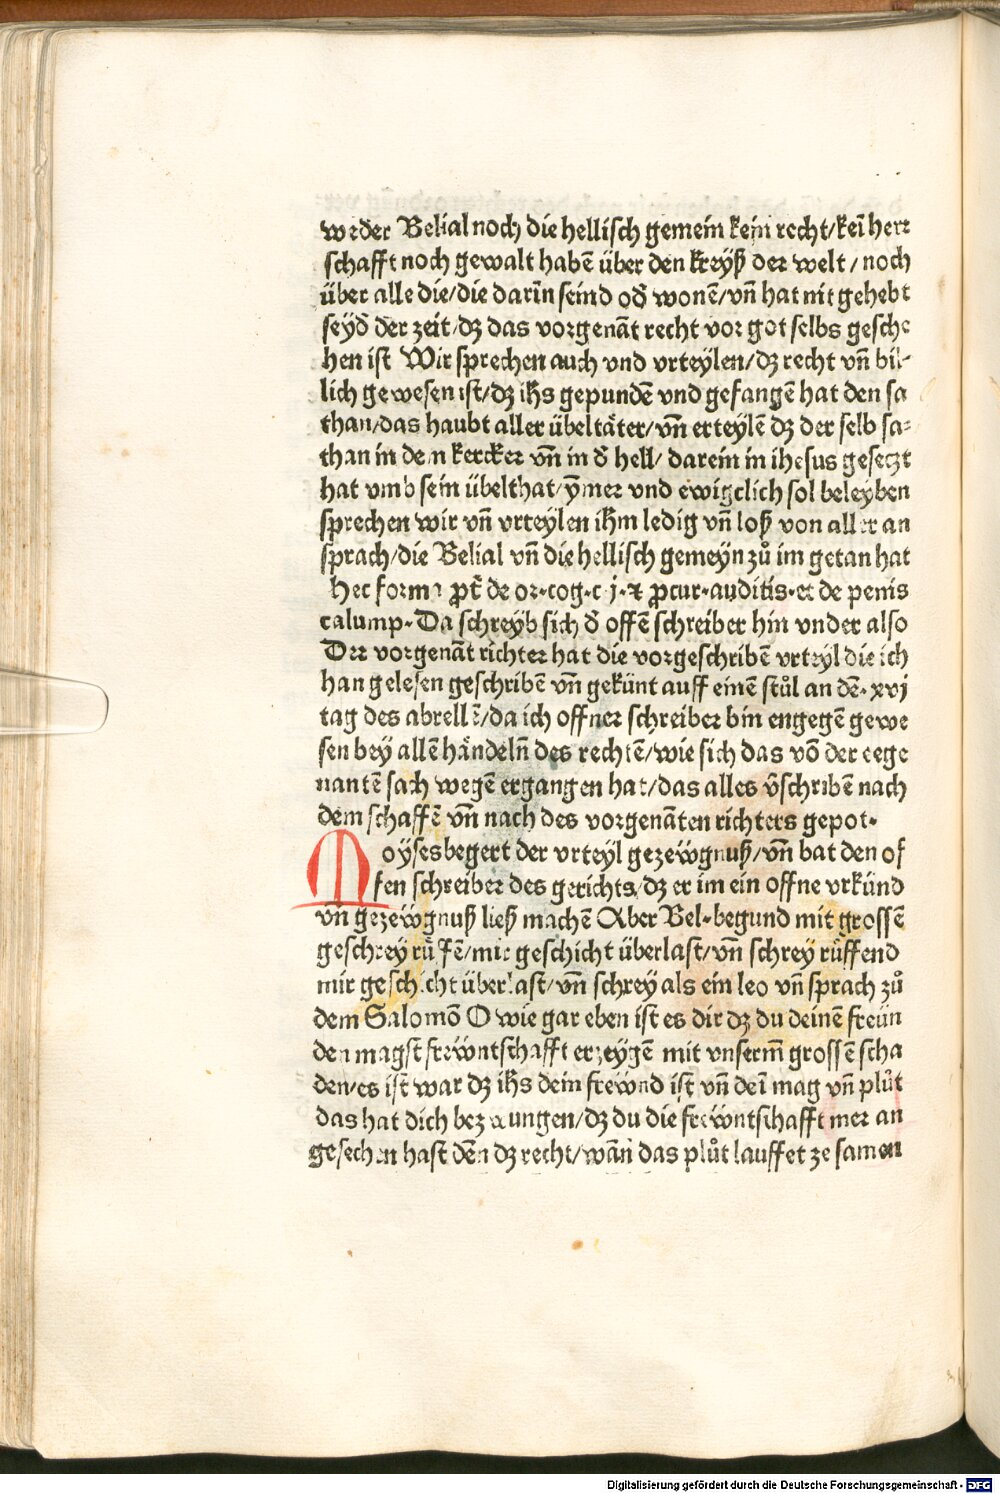 weder Belial noch die hellisch gemein kein recht/kei herr
schafft noch gewalt habē über den kreyß der welt/noch
über alle die/die darīn seind od̄ wonē/vn̄ hat nit gehebt
seyd̄ der zeit/dz das vorgenāt recht vor got selbs gesche
hen ist Wir sprechen auch vnd vrteylen/dz recht vn̄ bil-
lich gewesen ist/dz ihs gepundē vnd gefangē hat den sa
than/das haubt aller übeltäter/vn̄ erteylē dz der selb sa-
than in dem kercker vn̄ in d̄ hell/darein in ihesus gesetzt
hat vmb sein übelthat/ȳmer vnd ewigclich sol beleyben
sprechen wir vn̄ vrteylen ihm ledig vn̄ loß von aller an
sprach/die Belial vn̄ die hellisch gemeyn zů im getan hat
Hec forma ꝓt̄ de or·cog·c j·⁊ ꝓcur·auditis·et de penis
calump·Da schreyb sich d̄ offē schreiber hin vnder also
Der vorgenāt richter hat die vorgeschribē vrteyl die ich
han gelesen geschribē vn̄ gekünt auff einē stůl an dē·xvj
tag des abrellē/da ich offner schreiber bin engegē gewe
sen bey allē händeln̄ des rechtē/wie sich das vō der eege
nantē sach wegē ergangen hat/das alles v̄schribē nach
dem schaffē vn̄ nach des vorgenāten richters gepot·
Moyses begert der vrteyl gezeẅgnuß/vn̄ bat den of
fen schreiber des gerichts/dz er im ein offne vrkünd
vn̄ gezeẅgnuß ließ machē Aber Bel·begund mit grossē
geschrey růffē/mir geschicht überlast/vn̄ schrey růffend
mir geschicht überlast/vn̄ schrey als ein leo vn̄ sprach zů
dem Salomō O wie gar eben ist es dir dz du deinē freün
den magst freẅntschafft erzeygē mit vnserm̄ grossē scha
den/es ist war dz ihs dein freẅnd ist vn̄ deī mag vn̄ plůt
das hat dich bezwungen/dz du die freẅntschafft mer an
gesechen hast dēn dz recht/wān das plůt lauffet ze samen
Digitalisierung gefördert durch die Deutsche Forschungsgemeinschaft - DFG